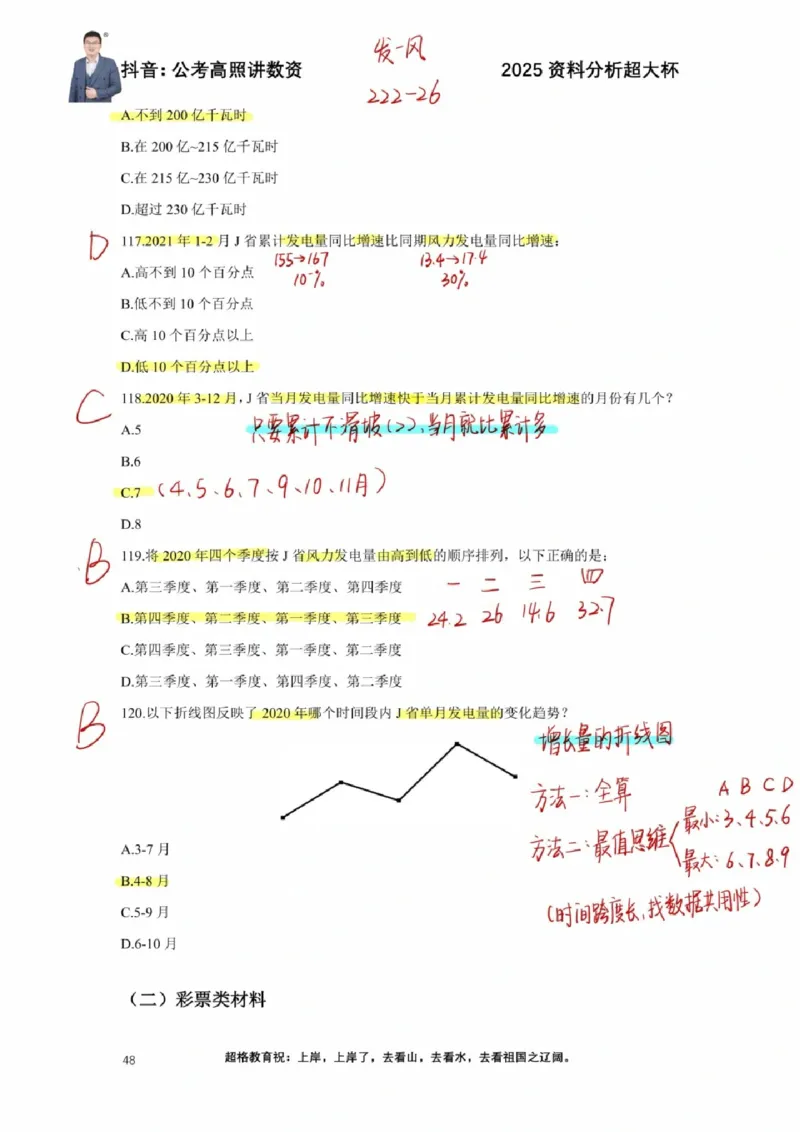 抖音：公考高照讲数资
发-风
2025 资料分析超大杯
222-26
A.不到 200 亿千瓦时
B.在 200 亿~215 亿千瓦时
C.在 215 亿~230 亿千瓦时
D.超过 230 亿千瓦时
D
117.2021 年 1-2 月 J 省累计发电量同比增速比同期风力发电量同比增速：
155→167
13.4→17.4
A.高不到 10 个百分点
10-%
30%
B.低不到 10 个百分点
C.高 10 个百分点以上
D.低 10 个百分点以上
C
118.2020 年 3-12 月，J 省当月发电量同比增速快于当月累计发电量同比增速的月份有几个？
A.5
只要累计不滑坡(≥)，当月就比累计多
B.6
C.7
(4、5、6、7、9、10、11月)
D.8
B
119.将 2020 年四个季度按 J 省风力发电量由高到低的顺序排列，以下正确的是：
A.第三季度、第一季度、第二季度、第四季度
一 二 三 四
B.第四季度、第二季度、第一季度、第三季度
24.2 26 14.6 32.7
C.第四季度、第三季度、第一季度、第二季度
D.第三季度、第一季度、第四季度、第二季度
B
120.以下折线图反映了 2020 年哪个时间段内 J 省单月发电量的变化趋势？
增长量的折线图
方法一：全算
A B C D
方法二：最值思维
最小：3、4、5、6
最大：6、7、8、9
(时间跨度长，找数据共用性)
A.3-7 月
B.4-8 月
C.5-9 月
D.6-10 月
（二）彩票类材料
48
超格教育祝：上岸，上岸了，去看山，去看水，去看祖国之辽阔。